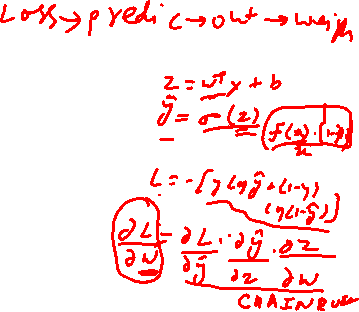 Loss → predic → out → weigh
z = wᵀx + b
ŷ = σ(z) f(z)·(1-
L = -[y log ŷ + (1-y)
log(1-ŷ)]
∂L/∂w = ∂L/∂ŷ · ∂ŷ/∂z · ∂z/∂w
CHAIN RULE